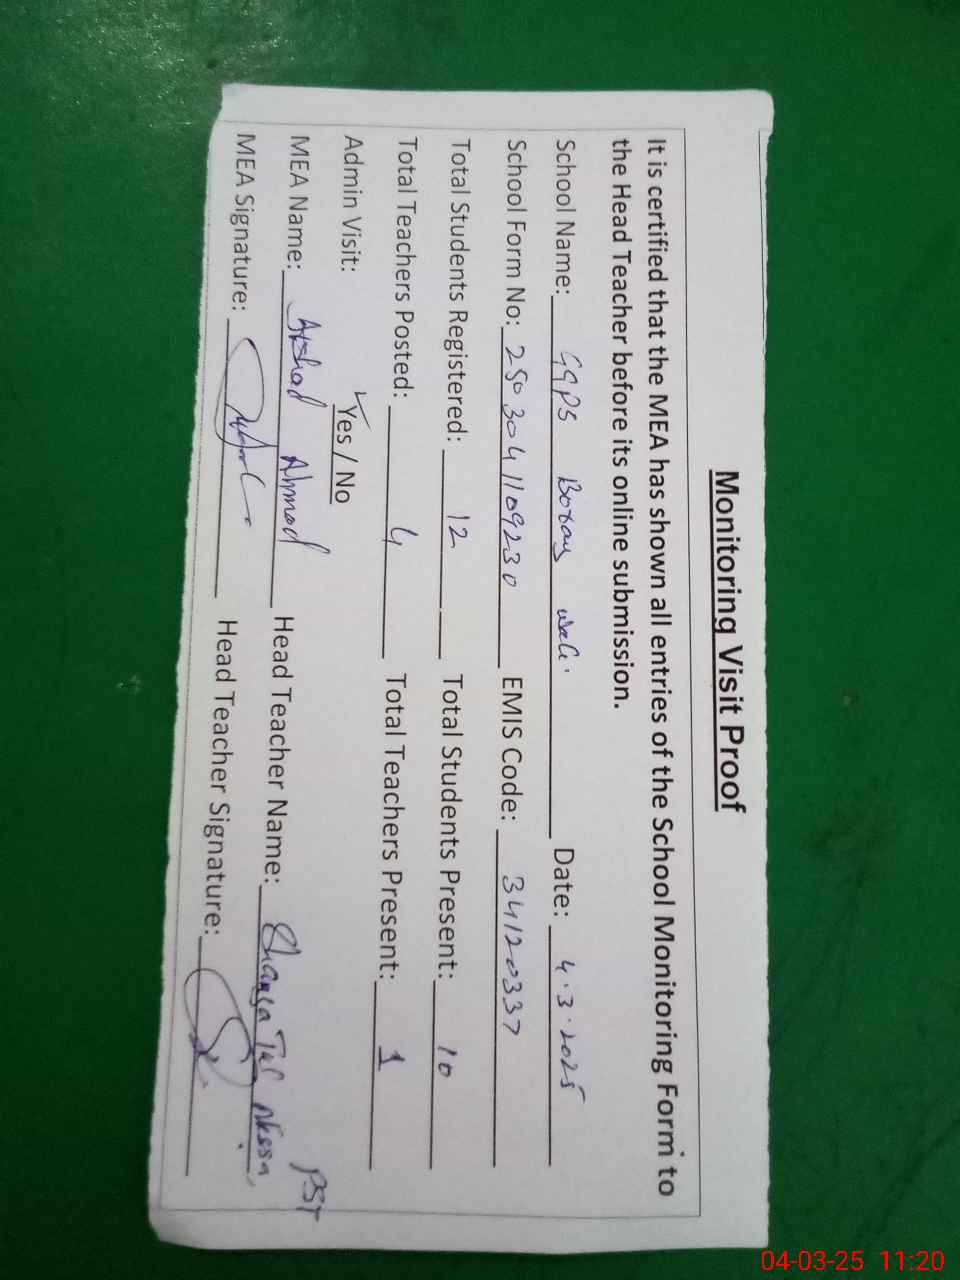 Monitoring Visit Proof
It is certified that the MEA has shown all entries of the School Monitoring Form to
the Head Teacher before its online submission.
School Name: GGPS Botay wali. Date: 4.3.2025
School Form No: 2503041109230 EMIS Code: 34120337
Total Students Registered: 12 Total Students Present: 10
Total Teachers Posted: 4 Total Teachers Present: 1
Admin Visit: Yes / No
MEA Name: Arshad Ahmad Head Teacher Name: PST
MEA Signature: Head Teacher Signature:
04-03-25 11:20